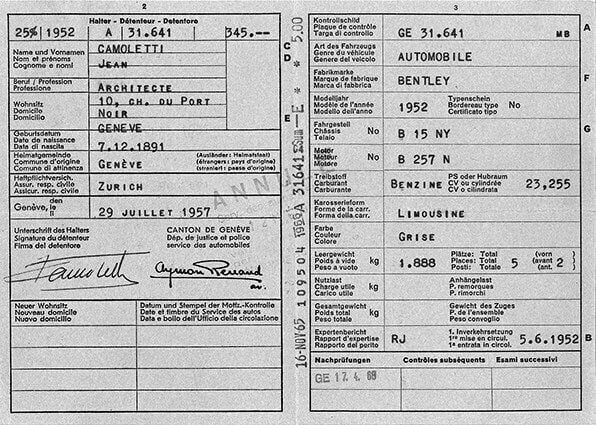 2
Halter - Détenteur - Detentore
25% 1952 A 31.641 345.--
Name und Vornamen
Nom et prénoms
Cognome e nomi
CAMOLETTI
JEAN
Beruf / Profession
Professione
ARCHITECTE
Wohnsitz
Domicile
Domicilio
10, CH. DU PORT
NOIR
GENEVE
Geburtsdatum
Date de naissance
Data di nascita
7.12.1891
Heimatgemeinde
Commune d'origine
Comune di attinenza
GENÈVE
(Ausländer: Heimatstaat)
(étrangers: pays d'origine)
(stranieri: paese d'origine)
Haftpflichtversich.
Assur. resp. civile
Assicur. resp. civile
ZURICH
Genève, den
le
li
29 JUILLET 1957
Unterschrift des Halters
Signature du détenteur
Firma del detentore
CANTON DE GENÈVE
Dép. de justice et police
service des automobiles
Camoletti
Neuer Wohnsitz
Nouveau domicile
Nuovo domicilio
Datum und Stempel der Motfz.-Kontrolle
Date et timbre du Service des autos
Data e bollo dell'Ufficio della circolazione
C
D
E
16-NOV65 109504 1966A 31641 Sum-E * * 5,00
3
Kontrollschild
Plaque de contrôle
Targa di controllo
GE 31.641 MB
A
Art des Fahrzeugs
Genre du véhicule
Genere del veicolo
AUTOMOBILE
Fabrikmarke
Marque de fabrique
Marca di fabbrica
BENTLEY
F
Modelljahr
Année du modèle
Anno del modello
1952
Typenschein
Bordereau type
Certificato tipo
No
Fahrgestell
Châssis
Telaio
No B 15 NY
G
Motor
Moteur
Motore
No B 257 N
Treibstoff
Carburant
Carburante
BENZINE
PS oder Hubraum
CV ou cylindrée
CV o cilindrata
23,255
Karosserieform
Forme de la carr.
Forma della carr.
LIMOUSINE
Farbe
Couleur
Colore
GRISE
Leergewicht
Poids à vide
Peso a vuoto
kg 1.888
Plätze: Total
Places: Total
Posti: Totale
5
(vorn
(avant
(ant.
2 )
Nutzlast
Charge utile
Carico utile
kg
Anhängelast
P. remorques
P. rimorchi
Gesamtgewicht
Poids total
Peso totale
kg
Gewicht des Zuges
P. de l'ensemble
Peso convoglio
Expertenbericht
Rapport d'expertise
Rapporto del perito
RJ
1. Inverkehrsetzung
1re mise en circul.
1a entrata in circol.
5.6.1952
B
Nachprüfungen Contrôles subséquents Esami successivi
GE 17. 4. 68